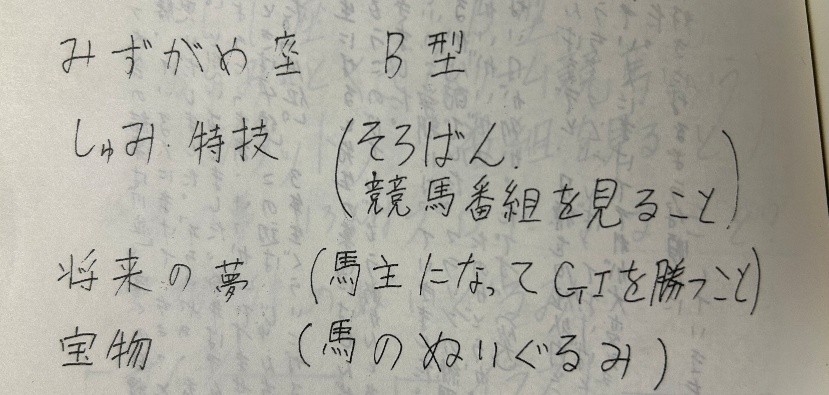 みずがめ座 B型
しゅみ・特技 (そろばん.
競馬番組を見ること.)
将来の夢 (馬主になってGIを勝つこと)
宝物 (馬のぬいぐるみ)